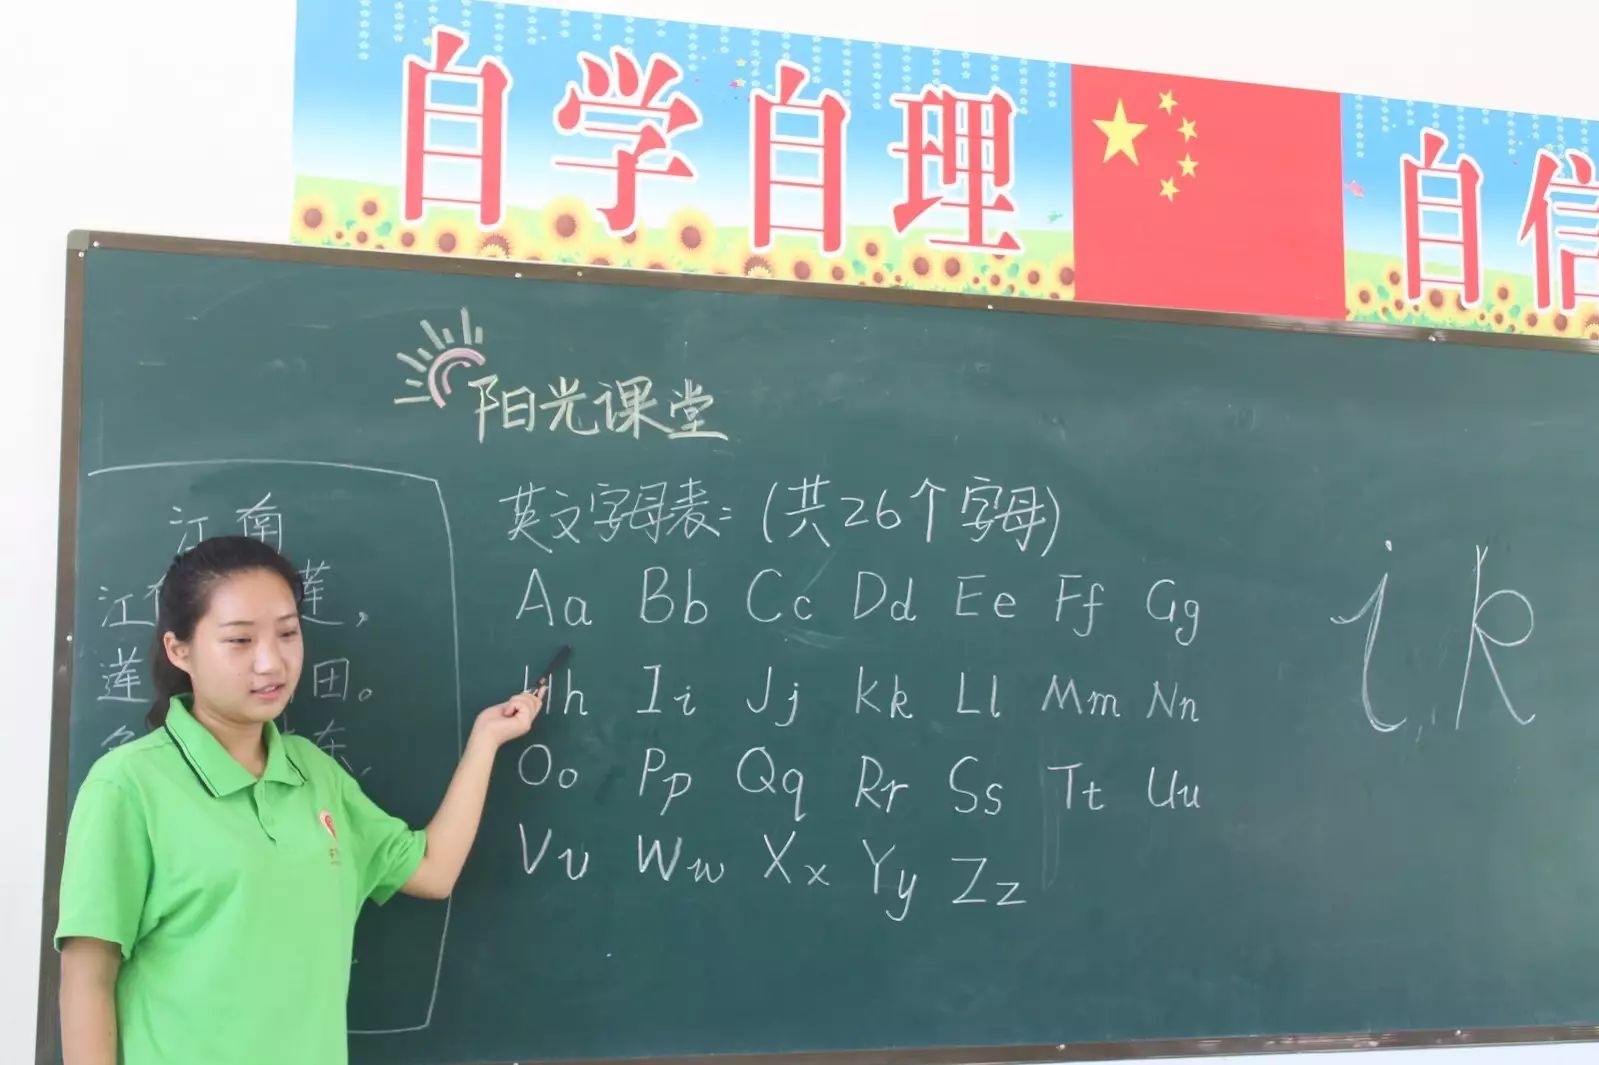 自学自理
自信
阳光课堂
江南
江 莲，
莲 田。
英文字母表：(共26个字母)
Aa Bb Cc Dd Ee Ff Gg
Hh Ii Jj Kk Ll Mm Nn
Oo Pp Qq Rr Ss Tt Uu
Vv Ww Xx Yy Zz
i k